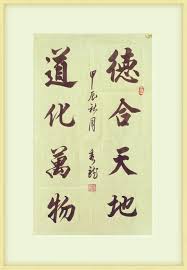 德合天地
道化萬物
甲辰秋月